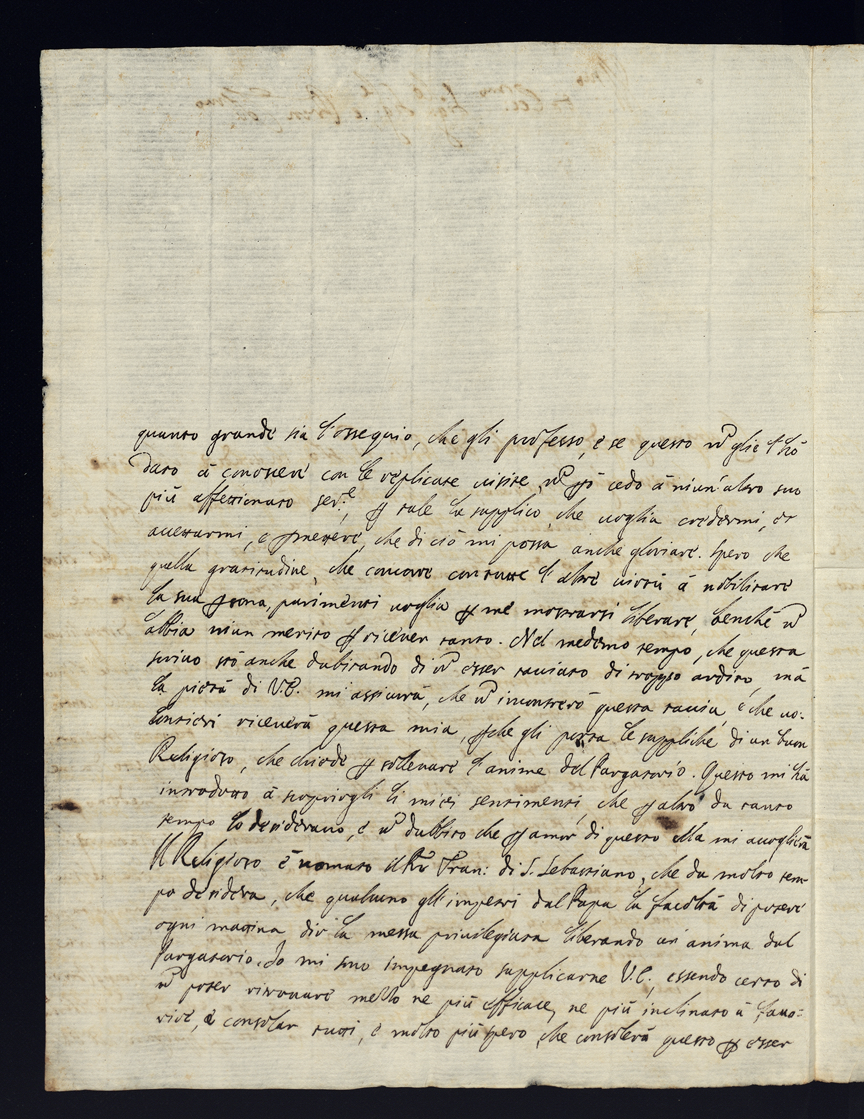 quanto grande sia l'ossequio, che gli professo, e se questo nō glie l'hò
dato à conoscere con le replicate visite, nō però cedo à niun'altro suo
più affettionato ser.re, p tale la supplico, che voglia credermi, et
accettarmi, e pmettere, che di ciò mi possa anche gloriare. Spero che
quella gratitudine, che concorre con tutte l'altre virtù à nobilitare
la sua psona, parimenti voglia p me mostrarsi liberare, benche nō
abbia niun merito p ricever tanto. Nel medemo tempo, che questa
scrivo stò anche dubitando di nō esser tacciato di troppo ardito, mà
la pietà di V.E. mi assicura, che nō incontrerò questa taccia, e che vo-
lentieri riceverà questa mia, pche gli porta le suppliche di un buon
Religioso, che chiede p sollevare l'anime del Purgatorio. Questo mi hà
introdotto à scoprirgli li miei sentimenti che p altro da tanto
tempo lo desideravo, e nō dubbito che p amor di questo ella mi accoglierà
Il Religioso è nomato il Fran: di S. Sebastiano, che da molto tem-
po desidera, che qualcuno gl'impetri dal Papa la facoltà di potere
ogni mattina dir la messa privilegiata liberando un'anima dal
Purgatorio. Io mi sono impegnato supplicarne V.E. essendo certo di
nō poter ritrovare mezzo ne più efficace, ne più inclinato à favo-
rire, e consolar tutti, e molto più spero che consolerà questo p esser